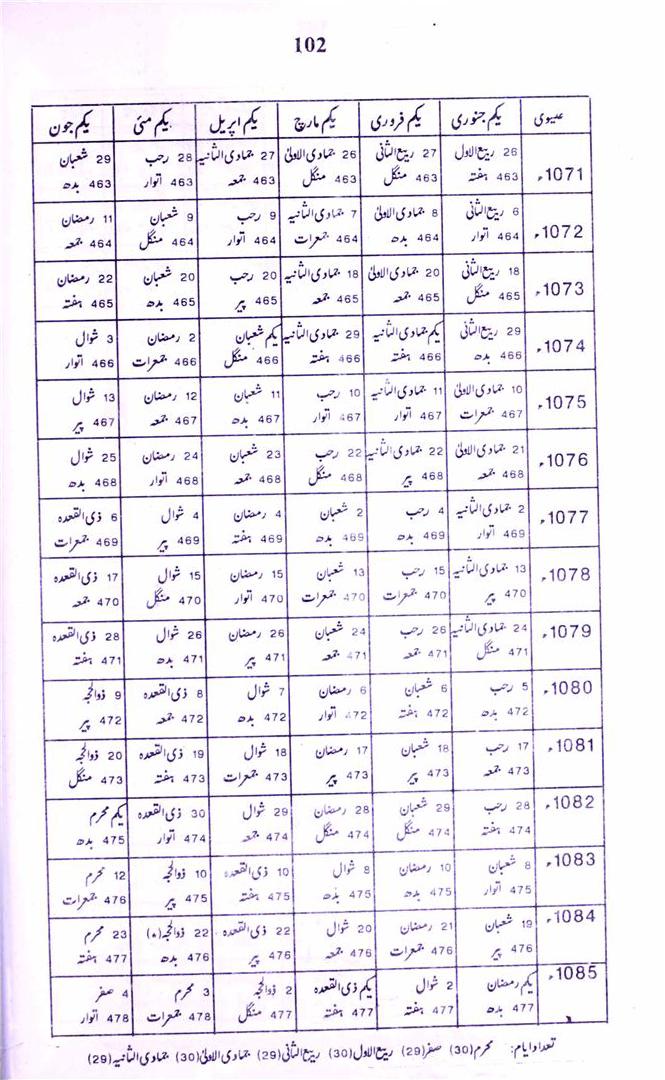 102
عیسوی یکم جنوری یکم فروری یکم مارچ یکم اپریل یکم مئی یکم جون
1071ء 26 ربیع الاول 27 ربیع الثانی 26 جمادی الاولیٰ 27 جمادی الثانیہ 28 رجب 29 شعبان
463 ہفتہ 463 منگل 463 منگل 463 جمعہ 463 اتوار 463 بدھ
1072ء 6 ربیع الثانی 8 جمادی الاولیٰ 7 جمادی الثانیہ 9 رجب 9 شعبان 11 رمضان
464 اتوار 464 بدھ 464 جمعرات 464 اتوار 464 منگل 464 جمعہ
1073ء 18 ربیع الثانی 20 جمادی الاولیٰ 18 جمادی الثانیہ 20 رجب 20 شعبان 22 رمضان
465 منگل 465 جمعہ 465 جمعہ 465 پیر 465 بدھ 465 ہفتہ
1074ء 29 ربیع الثانی یکم جمادی الثانیہ 29 جمادی الثانیہ یکم شعبان 2 رمضان 3 شوال
466 بدھ 466 ہفتہ 466 ہفتہ 466 منگل 466 جمعرات 466 اتوار
1075ء 10 جمادی الاولیٰ 11 جمادی الثانیہ 10 رجب 11 شعبان 12 رمضان 13 شوال
467 جمعرات 467 اتوار 467 اتوار 467 بدھ 467 جمعہ 467 پیر
1076ء 21 جمادی الاولیٰ 22 جمادی الثانیہ 22 رجب 23 شعبان 24 رمضان 25 شوال
468 جمعہ 468 پیر 468 منگل 468 جمعہ 468 اتوار 468 بدھ
1077ء 2 جمادی الثانیہ 4 رجب 2 شعبان 4 رمضان 4 شوال 6 ذی القعدہ
469 اتوار 469 بدھ 469 بدھ 469 ہفتہ 469 پیر 469 جمعرات
1078ء 13 جمادی الثانیہ 15 رجب 13 شعبان 15 رمضان 15 شوال 17 ذی القعدہ
470 پیر 470 جمعرات 470 جمعرات 470 اتوار 470 منگل 470 جمعہ
1079ء 24 جمادی الثانیہ 26 رجب 24 شعبان 26 رمضان 26 شوال 28 ذی القعدہ
471 منگل 471 جمعہ 471 جمعہ 471 پیر 471 بدھ 471 ہفتہ
1080ء 5 رجب 6 شعبان 6 رمضان 7 شوال 8 ذی القعدہ 9 ذوالحجہ
472 بدھ 472 ہفتہ 472 اتوار 472 بدھ 472 جمعہ 472 پیر
1081ء 17 رجب 18 شعبان 17 رمضان 18 شوال 19 ذی القعدہ 20 ذوالحجہ
473 جمعہ 473 پیر 473 پیر 473 جمعرات 473 ہفتہ 473 منگل
1082ء 28 رجب 29 شعبان 28 رمضان 29 شوال 30 ذی القعدہ یکم محرم
474 ہفتہ 474 منگل 474 منگل 474 جمعہ 474 اتوار 475 بدھ
1083ء 8 شعبان 10 رمضان 8 شوال 10 ذی القعدہ 10 ذوالحجہ 12 محرم
475 اتوار 475 بدھ 475 بدھ 475 ہفتہ 475 پیر 476 جمعرات
1084ء 19 شعبان 21 رمضان 20 شوال 22 ذی القعدہ 22 ذوالحجہ (*) 23 محرم
476 پیر 476 جمعرات 476 جمعہ 476 پیر 476 بدھ 477 ہفتہ
1085ء یکم رمضان 2 شوال یکم ذی القعدہ 2 ذوالحجہ 3 محرم 4 صفر
477 بدھ 477 ہفتہ 477 ہفتہ 477 منگل 478 جمعرات 478 اتوار
تعداد ایام: محرم (30) صفر (29) ربیع الاول (30) ربیع الثانی (29) جمادی الاولیٰ (30) جمادی الثانیہ (29)